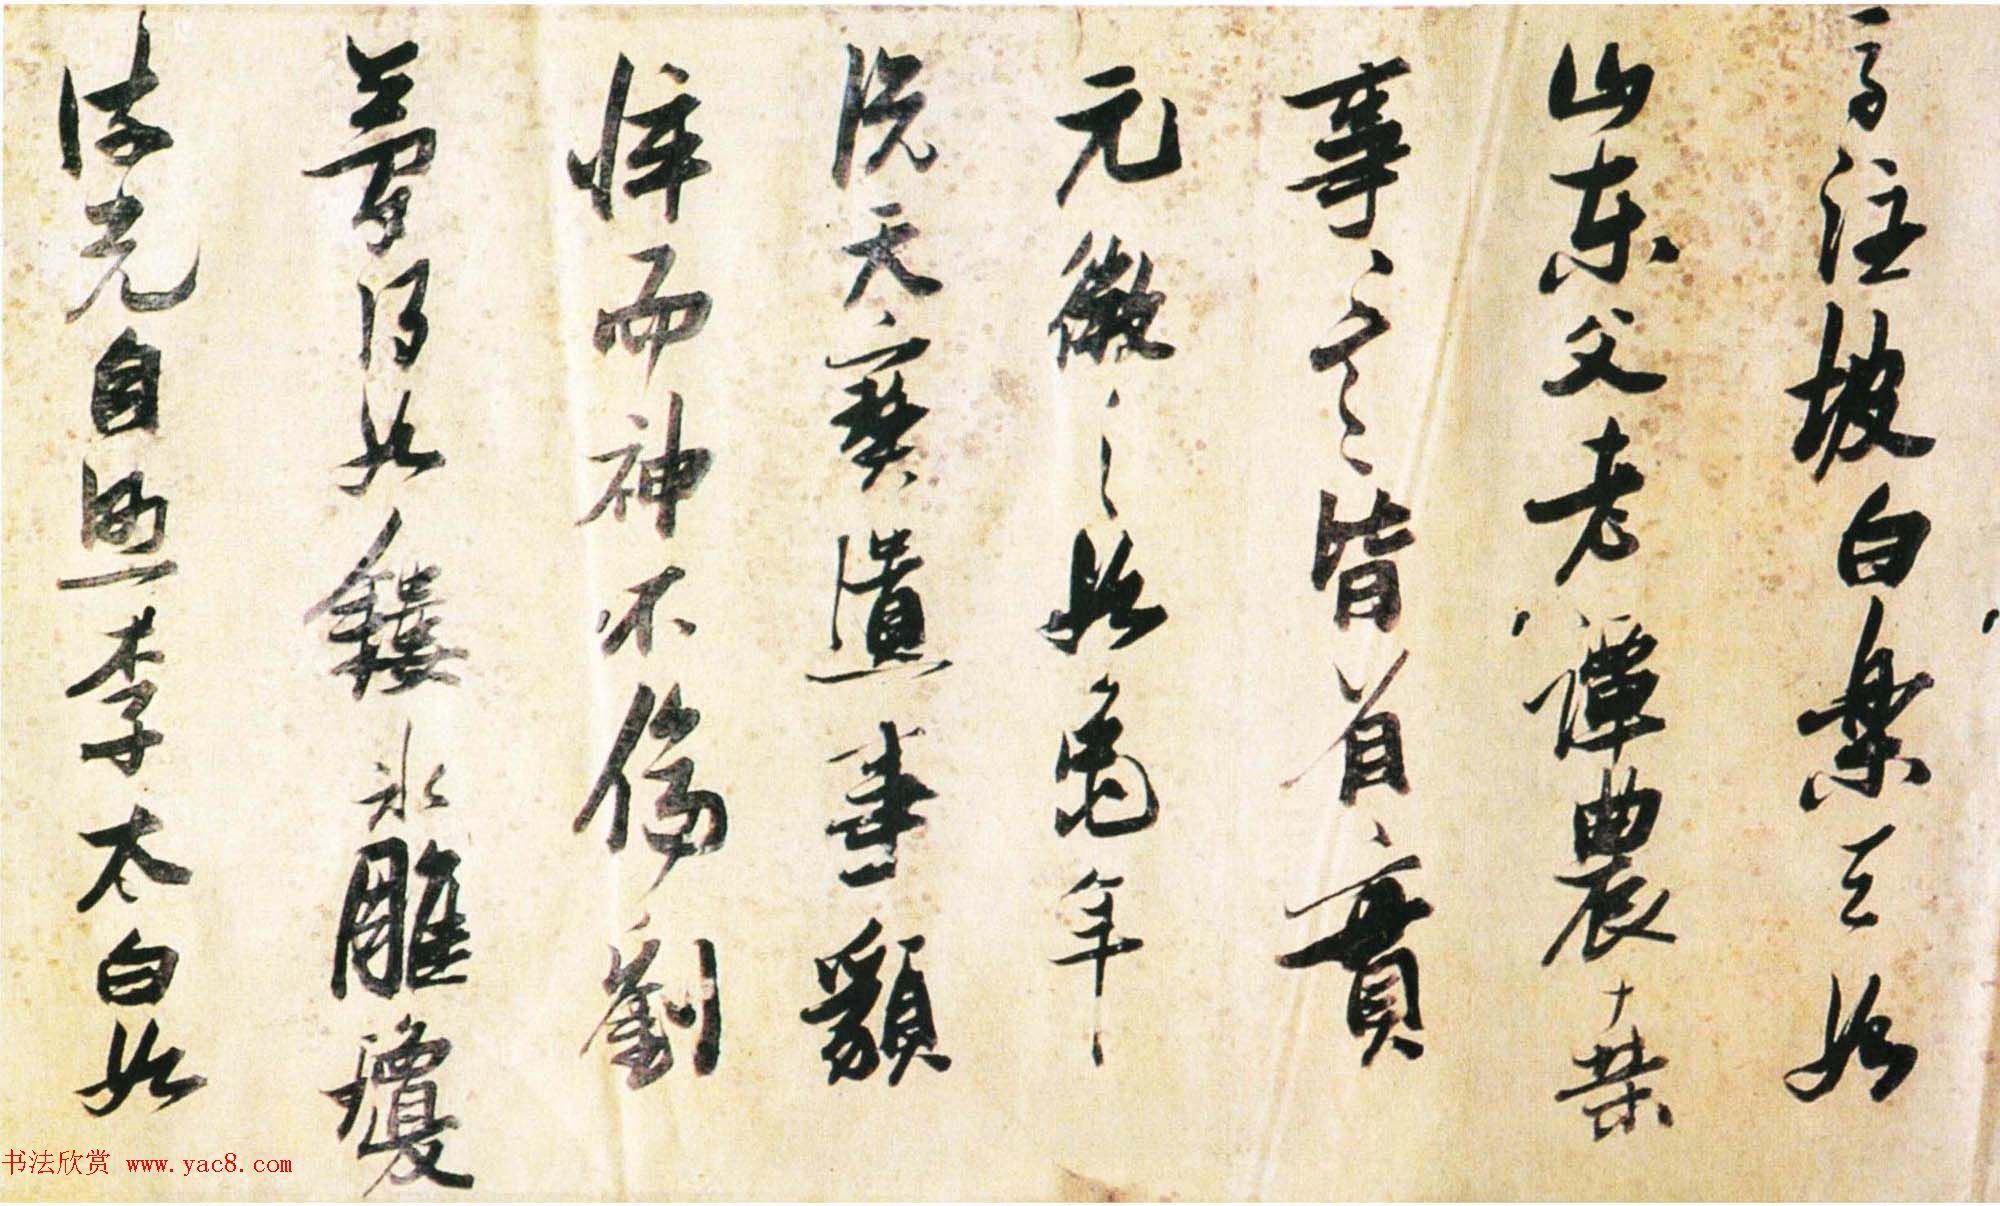 馬注坡白樂天如
山東父老譚農桑
事〻言〻皆着實
元微之如龜年
説天寶遺事䫉
悴而神不傷劉
夢得如鏤冰雕瓊
流光自照李太白如
书法欣赏 www.yac8.com